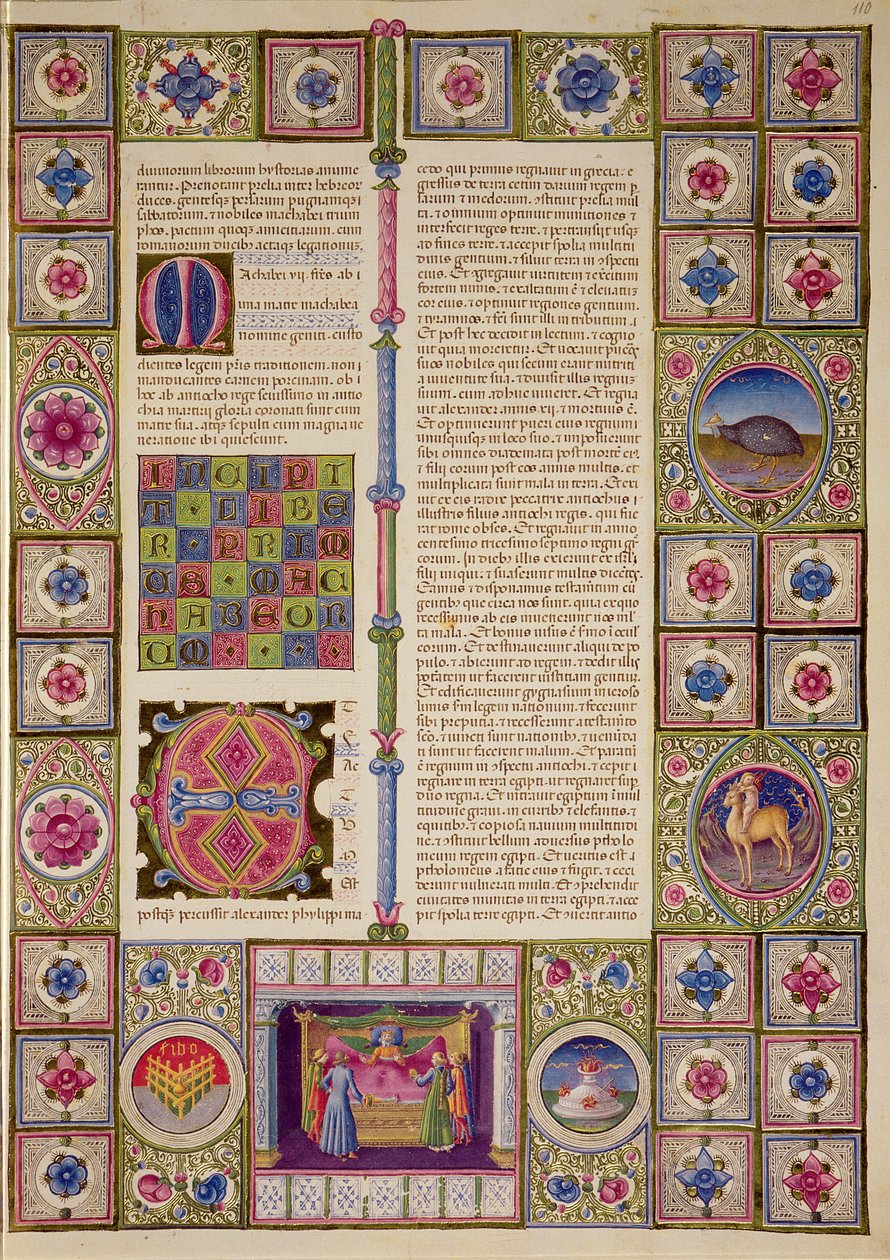 110
diuinorum librorum hystorias annume
rantur. Prenotant prelia inter hebreor
duces. gentesq; persarum pugnamq;
sabbatorum. & nobiles machabei trium
phos. pactum quoq; amicitiarum. cum
romanorum ducib; actaq; legationis.
Machabei vii. frēs ab i
una matre machabea
nomine geniti. custo
dientes legem pris traditionem. non
manducantes carnem porcinam. ob
hoc ab antiocho rege seuissimo in antio
chia martirii gloria coronati sunt cum
matre sua. atq; sepulti cum magna ue
neratione ibi quiescunt.
INCIPI
T LIBE
R PRIM
US MAC
HABEOR
UM
ET
F
A
C
T
V
M
EST
postq; percussit alexander phylippi ma
cedo qui primus regnauit in grecia. e
gressus de terra cetim darium regem p
sarum & medorum. ɔstituit prelia mul
ta. & omnium optinuit munitiones &
interfecit reges terre. & pertransiit usq;
ad fines terre. & accepit spolia multitu
dinis gentium. & siluit terra in ɔspectu
eius. Et ɔgregauit uirtutem & exercitum
fortem nimis. & exaltatum ē & eleuatū
cor eius. & optinuit regiones gentium.
& tyrannos. & fcti sunt illi in tributum.
Et post hec decidit in lectum. & cogno
uit quia moreretur. Et uocauit pueros
suos nobiles qui secum erant nutriti
a iuuentute sua. & diuisit illis regnum
suum. cum adhuc uiueret. Et regna
uit alexander annis. xii. & mortuus ē.
Et optinuerunt pueri eius regnum
unusquisq; in loco suo. & imposuerunt
sibi omnes diademata post mortē ei
& filii eorum post eos annis multis. et
multiplicata sunt mala in terra. Et exi
uit ex eis radix peccatrix antiochus
illustris filius antiochi regis. qui fue
rat rome obses. Et regnauit in anno
centesimo tricesimo septimo regni g̅
corum. In dieb; illis exierunt ex isrl
filii iniqui. & suaserunt multis dicentes.
Eamus & disponamus testamentum cū
gentib; que circa nos sunt. quia ex quo
recessimus ab eis inuenerunt nos mul
ta mala. Et bonus uisus ē sermo in oculis
eorum. Et destinauerunt aliqui de po
pulo. & abierunt ad regem. & dedit illis
potatem ut facerent iustitiam gentium.
Et edificauerunt gygnasium ierosoo
limis sm legem nationum. & fecerunt
sibi preputia. & recesserunt a testamento
sco. & iuncti sunt nationib;. & uenunda
ti sunt ut facerent malum. Et paratū
ē regnum in ɔspectu antiochi. & cepit
regnare in terra egipti. ut regnaret sup
duo regna. Et intrauit egiptum in mul
titudine graui. in currib; & elefantis. &
equitib;. & copiosa nauium multitudi
ne. & ɔstituit bellum aduersus ptholo
meum regem egipti. Et ueritus est
ptholomeus a facie eius & fugit. & ceci
derunt uulnerati multi. Et ɔprehendit
ciuitates munitas in terra egipti. & acce
pit spolia terre egipti. Et ɔuertit antio
FIDO